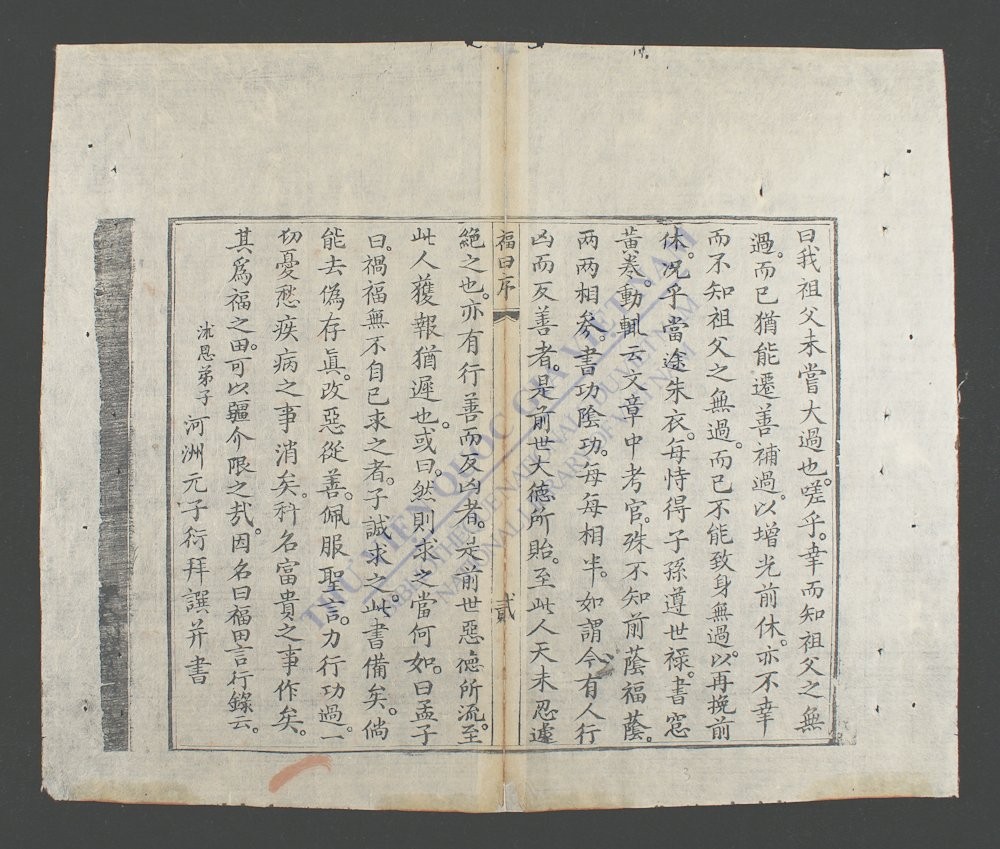 曰我祖父未嘗大過也。嗟乎。幸而知祖父之無
過。而已猶能遷善補過。以增光前休。亦不幸
而不知祖父之無過。而已不能致身無過。以再挽前
休。况乎當途朱衣。每恃得子孫遵世祿。書窓
黃卷。動輒云文章中考官。殊不知前蔭福蔭。
两两相參。書功陰功。每每相半。如謂今有人行
凶而反善者。是前世大德所貽。至此人天未忍遽
福田序
貳
絕之也。亦有行善而反凶者。是前世惡德所流。至
此人獲報猶遲也。或曰。然則求之當何如。曰孟子
曰。禍福無不自已求之者。子誠求之。此書備矣。倘
能去偽存眞。改惡從善。佩服聖言。力行功過。一
切憂愁疾病之事消矣。科名富貴之事作矣。
其爲福之田。可以疆介限之哉。因名曰福田言行錄云。
沐恩弟子河洲元子衍拜譔并書
THƯ VIỆN QUỐC GIA VIỆT NAM
NATIONAL LIBRARY OF VIETNAM
3